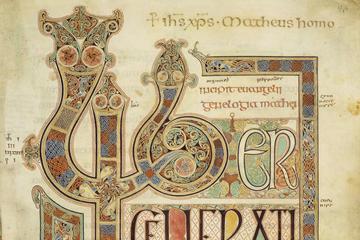 + ihs xps · Matheus homo
incipit euangelii
genelogia mathei
LIBER
GENERATI